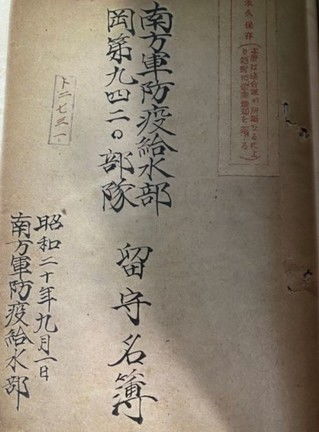 永久保存
南方軍防疫給水部
岡第九四二〇部隊
留守名簿
ト二七三一
昭和二十年九月一日
南方軍防疫給水部